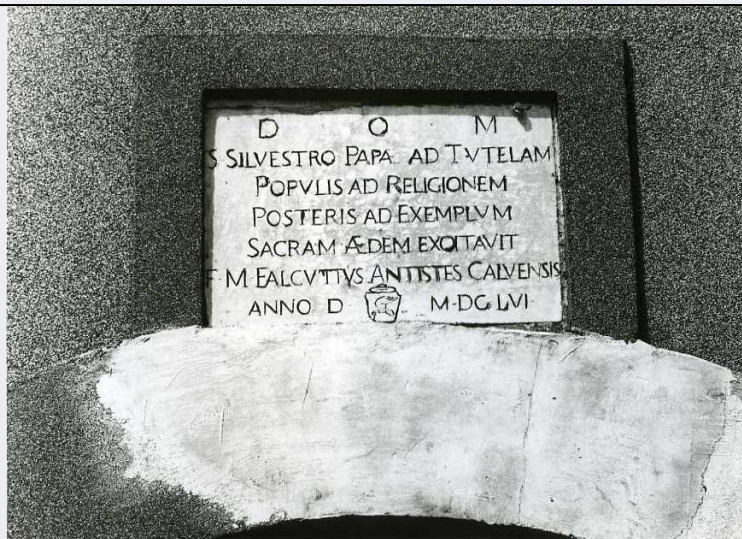 D O M
S SILVESTRO PAPÆ AD TVTELAM
POPVLIS AD RELIGIONEM
POSTERIS AD EXEMPLVM
SACRAM ÆDEM EXCITAVIT
F M FALCVTIVS ANTISTES CALVENSIS
ANNO D M·DCLVI·